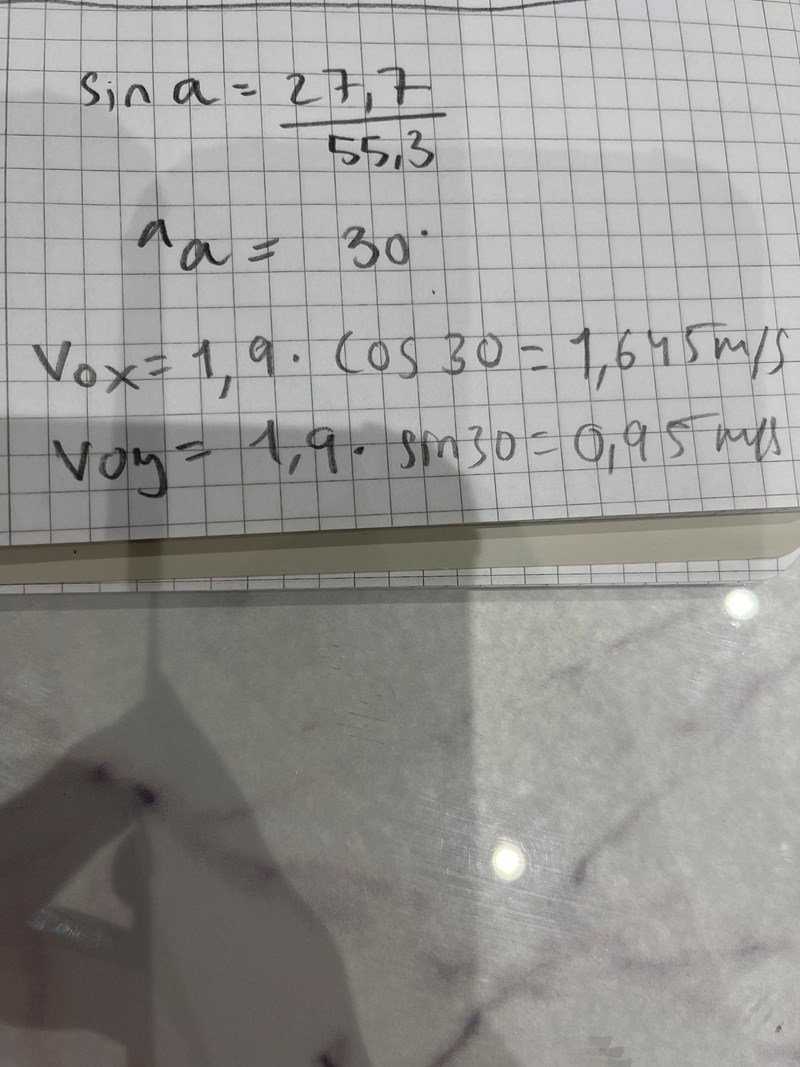 sin a = 27,7
55,3
a a = 30°
Vox = 1,9 · cos 30 = 1,645 m/s
Voy = 1,9 · sin 30 = 0,95 m/s